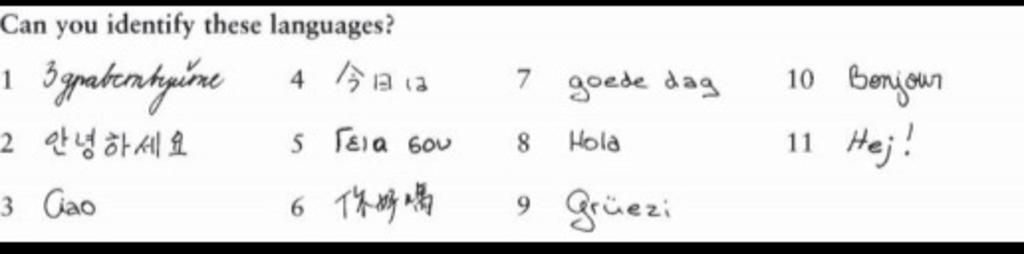 Can you identify these languages?
1 Здравствуйте
2 안녕하세요
3 Ciao
4 今日は
5 Γεια σου
6 你好嗎
7 goede dag
8 Hola
9 Grüezi
10 Bonjour
11 Hej!